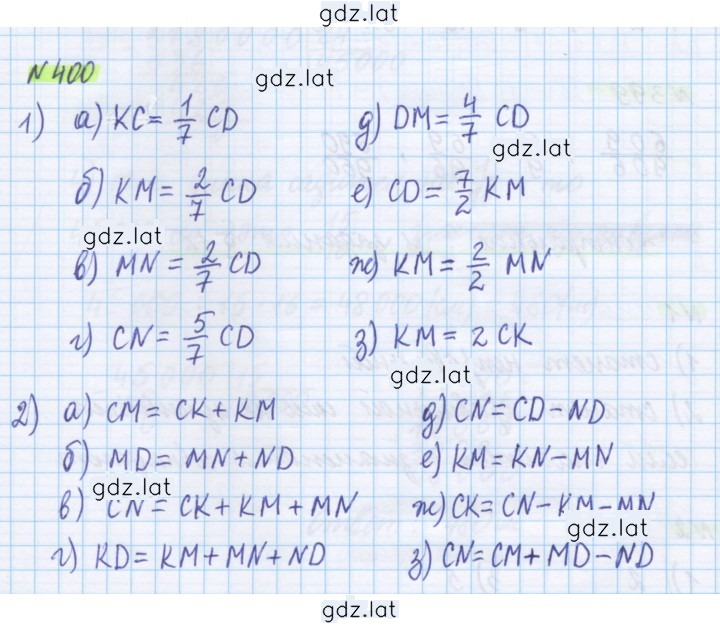 gdz.lat
N 400
gdz.lat
1) а) KC = 1/7 CD д) DM = 4/7 CD
gdz.lat
б) KM = 2/7 CD е) CD = 7/2 KM
gdz.lat
в) MN = 2/7 CD ж) KM = 2/2 MN
г) CN = 5/7 CD з) KM = 2 CK
gdz.lat
2) а) CM = CK + KM д) CN = CD - ND
б) MD = MN + ND е) KM = KN - MN
gdz.lat
в) CN = CK + KM + MN ж) CK = CN - KM - MN
gdz.lat
г) KD = KM + MN + ND з) CN = CM + MD - ND
gdz.lat